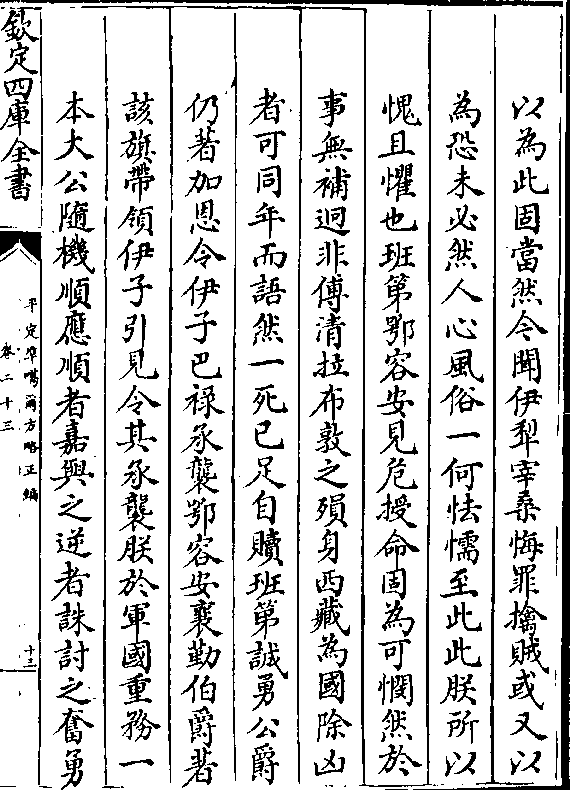 以為此固當然今聞伊犁宰桑悔罪擒賊或又以
為恐未必然人心風俗一何怯懦至此此朕所以
愧且懼也班第鄂容安見危授命固為可憫然於
事無補迥非傅清拉布敦之殞身西藏為國除凶
者可同年而語然一死已足自贖班第誠勇公爵
仍著加恩令伊子巴祿承襲鄂容安襄勤伯爵著
該旗帶領伊子引見令其承襲朕於軍國重務一
本大公隨機順應順者嘉與之逆者誅討之奮勇
欽定四庫全書
平定準噶爾方略正編
卷二十三
十三